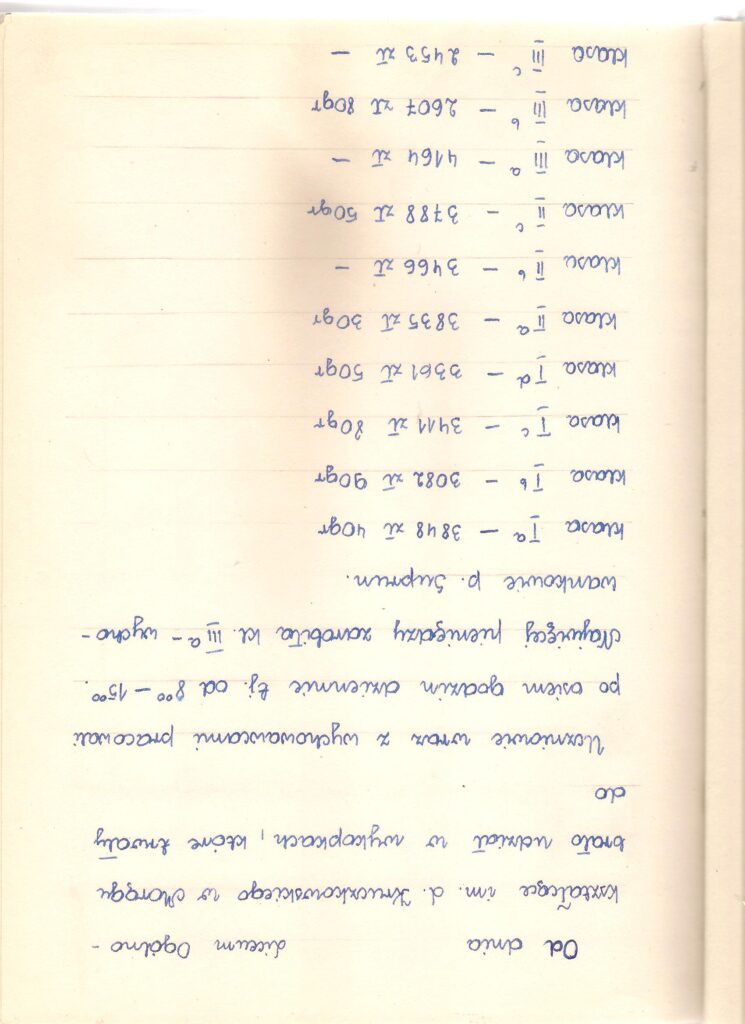 Od dnia liceum Ogólno-
kształcące im. L. Kruczkowskiego w Morągu
brało udział w wykopkach, które trwały
do
Uczniowie wraz z wychowawcami pracowali
po osiem godzin dziennie tj. od 8⁰⁰ – 15⁰⁰.
Najwięcej pieniędzy zarobiła kl. III a – wycho-
wankowie p. Suprun.
klasa I a – 3848 zł 40gr
klasa I b – 3082 zł 90gr
klasa I c – 3411 zł 80gr
klasa I d – 3361 zł 50gr
klasa II a – 3835 zł 30gr
klasa II b – 3466 zł –
klasa II c – 3788 zł 50gr
klasa III a – 4164 zł –
klasa III b – 2607 zł 80gr
klasa III c – 2453 zł –